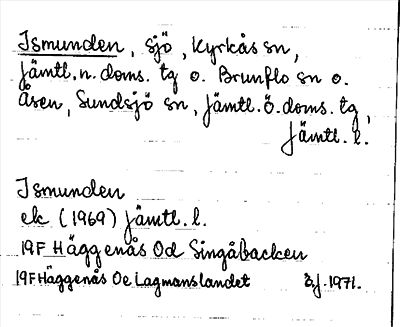 Ismunden, sjö, Kyrkås sn,
Jämtl. n. doms. tg o. Brunflo sn o.
Åsen, Sundsjö sn, Jämtl. ö. doms. tg,
Jämtl. l.
Ismunden
ek (1969) Jämtl. l.
19F Häggenås Od Singåbacken
19F Häggenås Oe Lagmanslandet 1971.